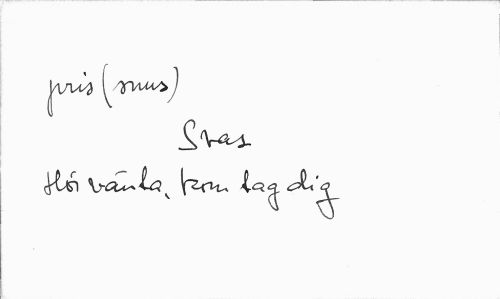 pris (snus)
Svas
Hör vänta, kom tag dig